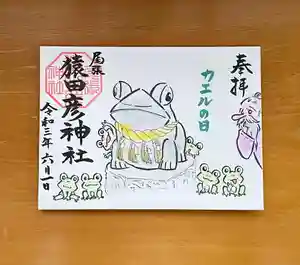 奉拝
カエルの日
尾張
猿田彦神社
令和三年六月一日